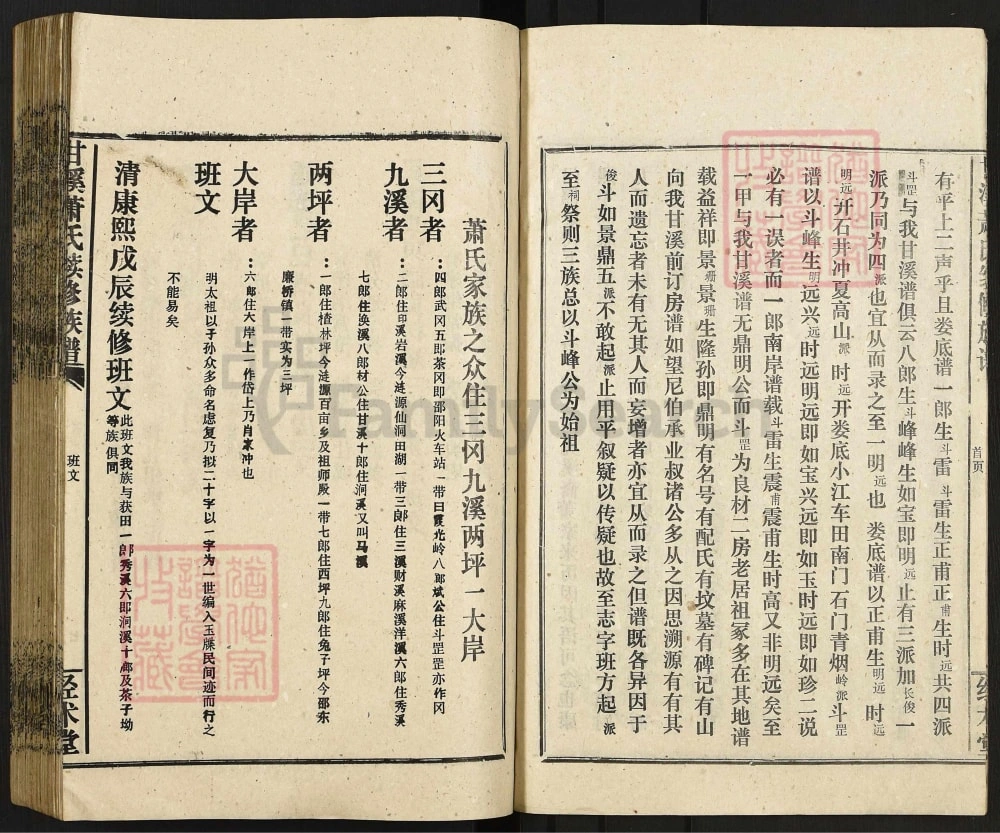 有平上二声乎且娄底谱一郎生斗雷 斗雷生正甫正甫生时远共四派
斗罡与我甘溪谱俱云八郎生斗峰峰生如宝即明远止有三派加长俊一
派乃同为四派也宜从而录之至一明远也 娄底谱以正甫生明远 时远
明远开石井冲夏高山派 时远开娄底小江车田南门石门青烟岭派斗罡
谱以斗峰生明远兴远时远明远即如宝兴远即如玉时远即如珍二说
必有一误者而一郎南岸谱载斗雷生震甫震甫生时高又非明远矣至
一甲与我甘溪谱无鼎明公而斗罡为良材二房老居祖冢多在其地谱
载益祥即景珊景珊生隆孙即鼎明有名号有配氏有坟墓有碑记有山
向我甘溪前订房谱如望尼伯承业叔诸公多从之因思溯源有有其
人而遗忘者未有无其人而妄增者亦宜从而录之但谱既各异因于
俊斗如景鼎五派不敢起派止用平叙疑以传疑也故至志字班方起派
至祠祭则三族总以斗峰公为始祖
首页
萧氏家族之众住三冈九溪两坪一大岸
三冈者：四郎武冈五郎茶冈即邵阳火车站一带曰霞光岭八郎斌公住斗罡罡亦作冈
九溪者：二郎住印溪岩溪今涟源仙洞田湖一带三郎住三溪财溪麻溪洋溪六郎住秀溪
七郎住涣溪八郎材公住甘溪十郎住洞溪又叫马溪
两坪者：一郎住楂林坪今涟源百亩乡及祖师殿一带七郎住西坪九郎住兔子坪今邵东
廉桥镇一带实为三坪
大岸者：六郎住大岸上一作岱上乃肖家冲也
班文
明太祖以子孙众多命名虑复乃拟二十字以一字为一世编入玉牒民间迹而行之
不能易矣
清康熙戊辰续修班文此班文我族与荻田一郎秀溪六郎洞溪十郎及茶子坳
等族俱同
班文
甘溪萧氏续修族谱
FamilySearch